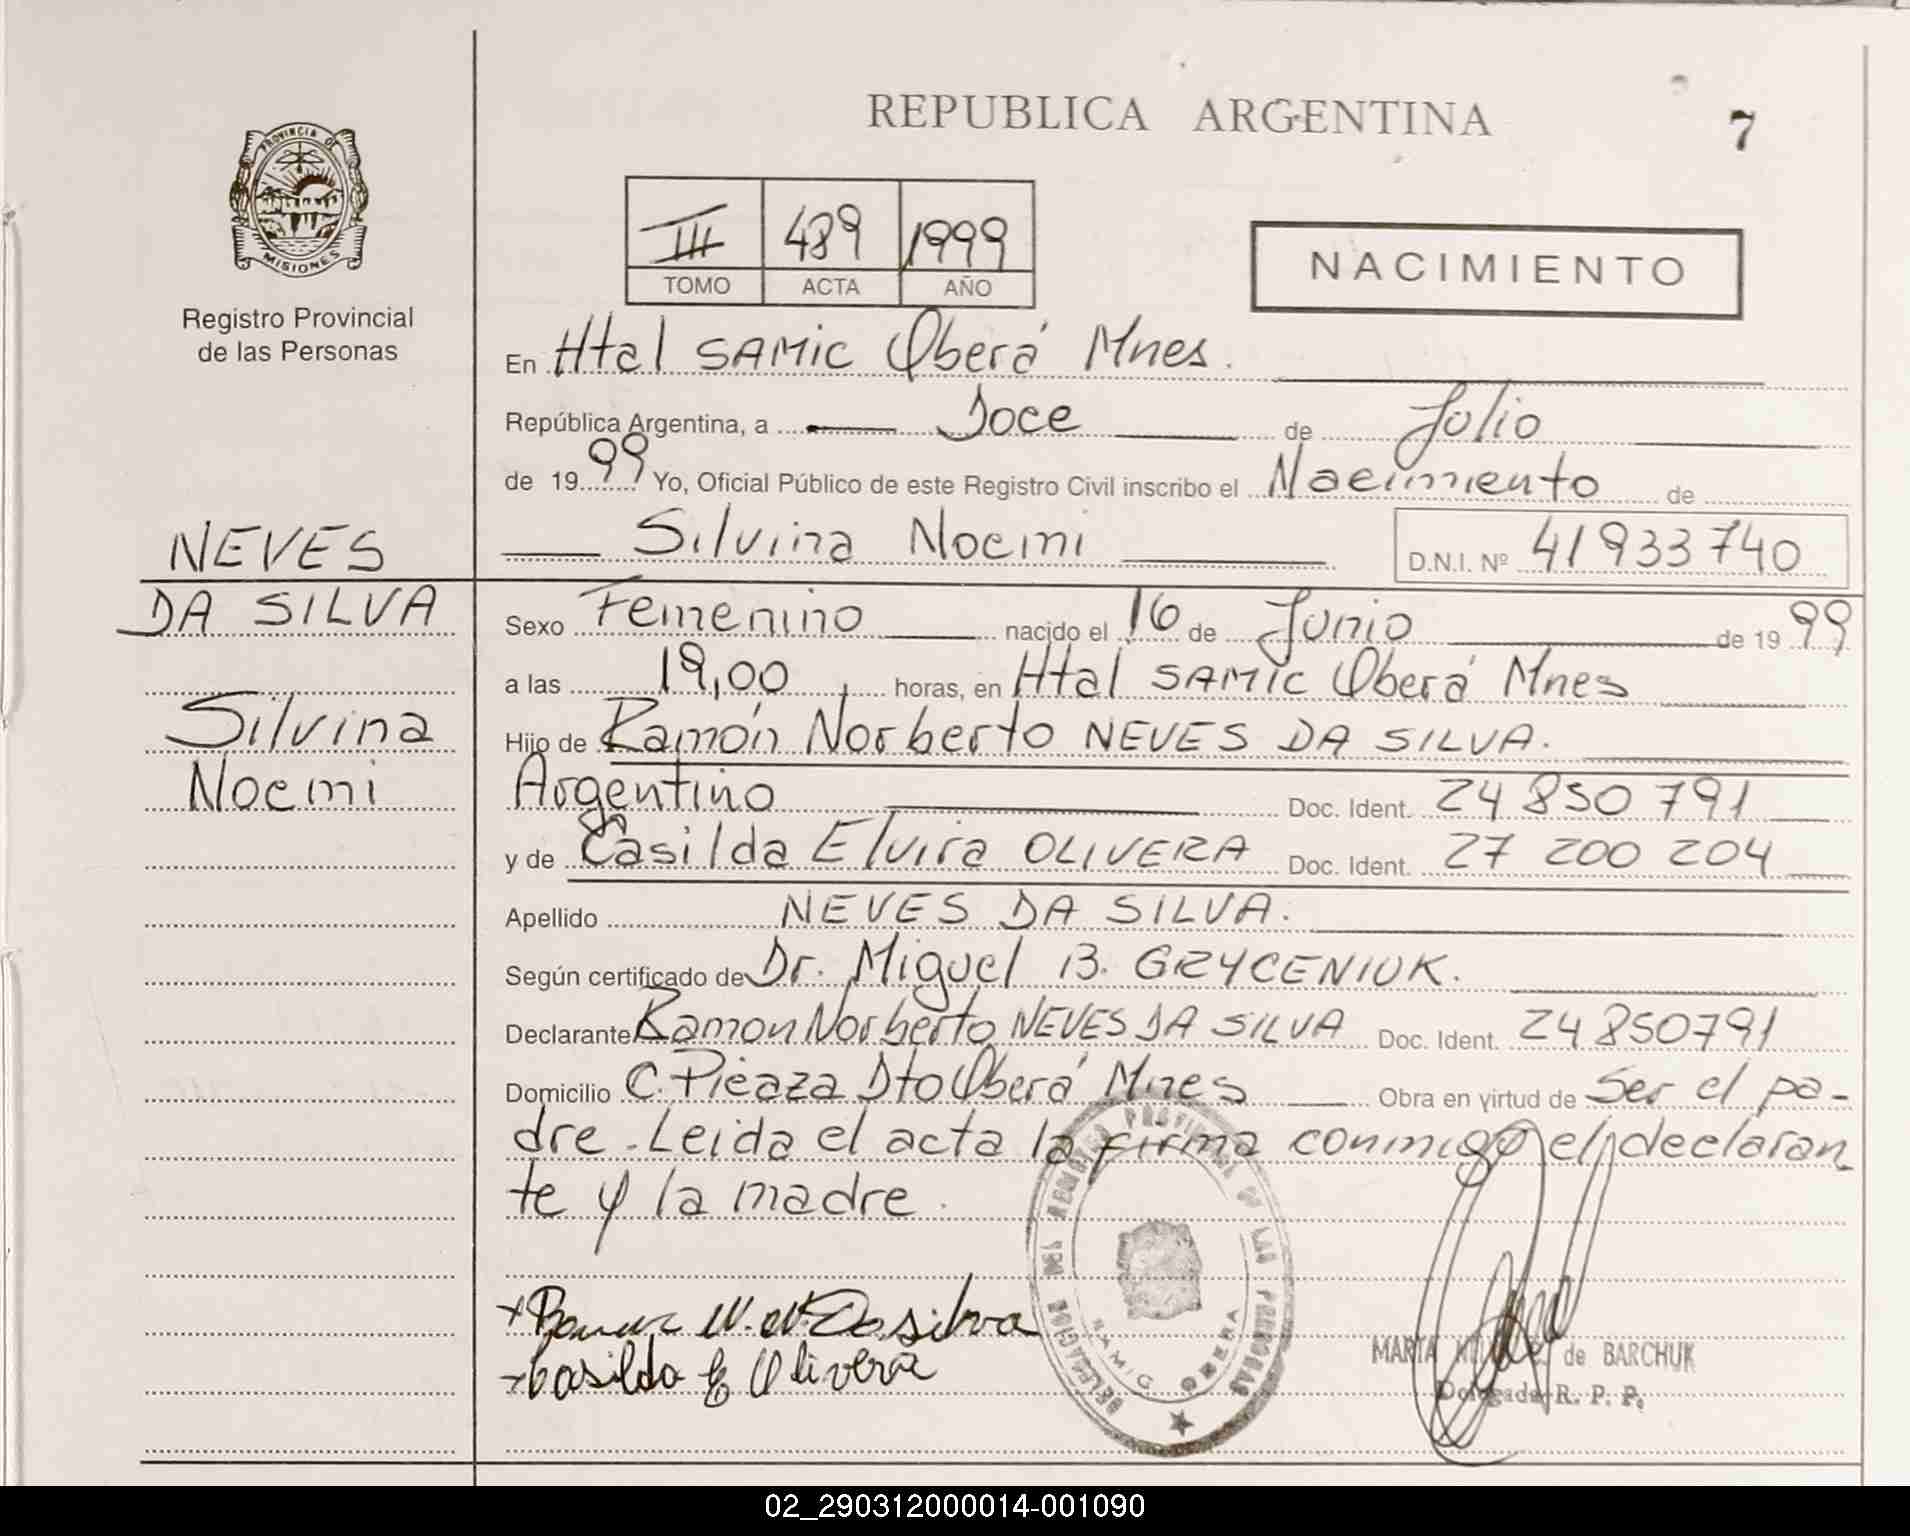 REPUBLICA ARGENTINA
7
PROVINCIA DE
MISIONES
Registro Provincial
de las Personas
III 489 1999
TOMO ACTA AÑO
NACIMIENTO
En Htal SAMIC Oberá Mnes.
República Argentina, a Doce de Julio
de 1999 Yo, Oficial Público de este Registro Civil inscribo el Nacimiento de
Silvina Noemi D.N.I. Nº 41933740
NEVES
DA SILVA
Silvina
Noemi
Sexo Femenino nacido el 16 de Junio de 1999
a las 19,00 horas, en Htal SAMIC Oberá Mnes
Hijo de Ramón Norberto NEVES DA SILVA.
Argentino Doc. Ident. 24 850 791
y de Casilda Elvira OLIVERA Doc. Ident. 27 200 204
Apellido NEVES DA SILVA.
Según certificado de Dr. Miguel B. GRYCENIUK.
Declarante Ramon Norberto NEVES DA SILVA Doc. Ident. 24850791
Domicilio C. Picaza Dto Oberá Mnes Obra en virtud de Ser el pa-
dre. Leida el acta la firma conmigo el declaran
te y la madre.
DELEGACION DEL REGISTRO PROVINCIAL DE LAS PERSONAS
SAMIC OBERA
N. Da silva
Casilda E Olivera
MARTA de BARCHUK
Delegada R. P. P.
02_290312000014-001090